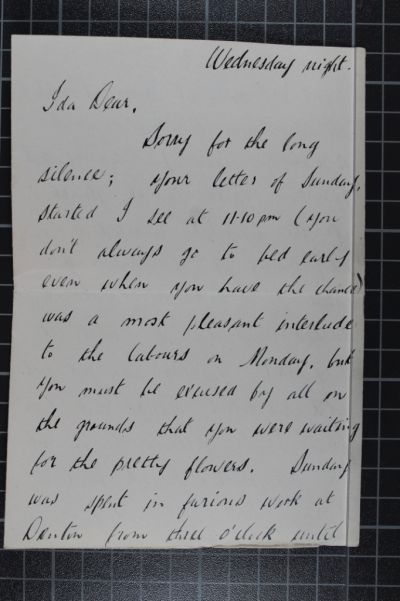 Wednesday night.
Ida Dear,
Sorry for the long
silence; your letter of Sunday,
started I see at 11-10 pm (you
don't always go to bed early
even when you have the chance)
was a most pleasant interlude
to the labours on Monday, but
you must be excused by all on
the grounds that you were waiting
for the pretty flowers. Sunday
was spent in furious work at
Denton from three o'clock until